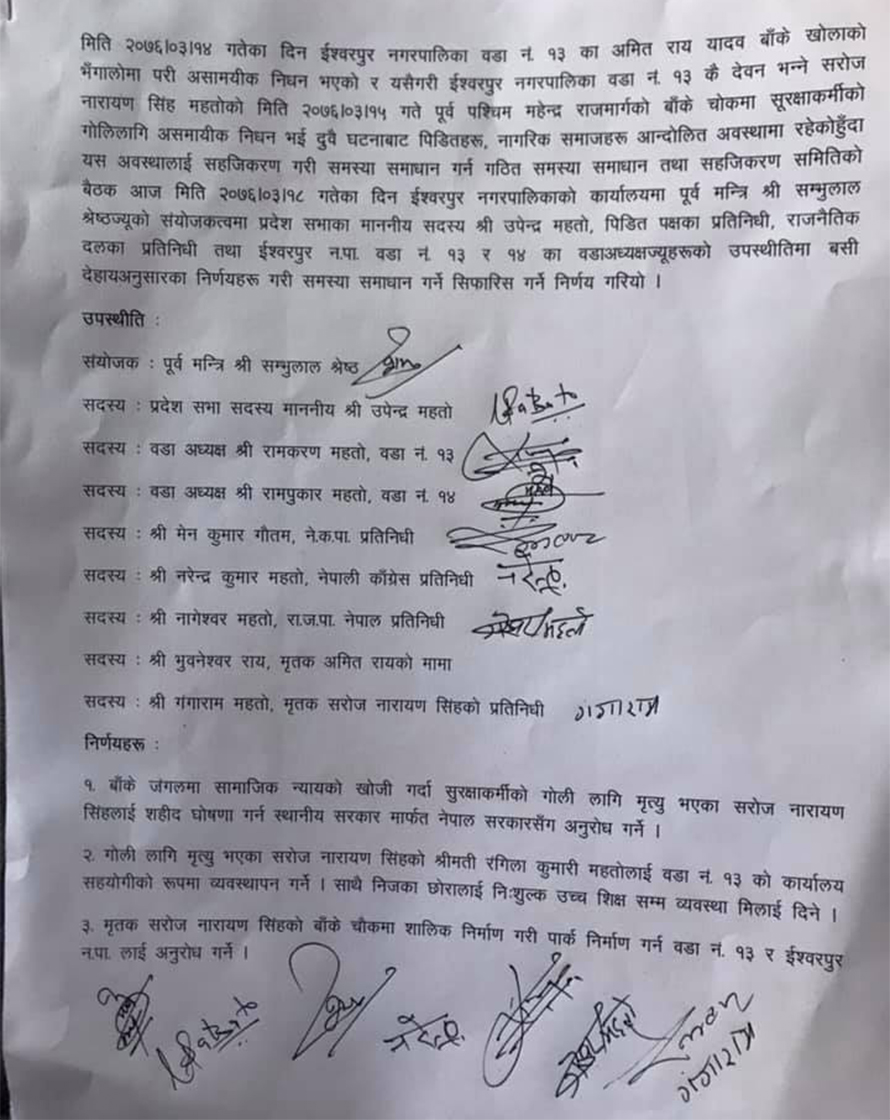 मिति २०७६।०३।१४ गतेका दिन ईश्वरपुर नगरपालिका वडा नं. १३ का अमित राय यादव बाँके खोलाको
भँगालोमा परी असामयीक निधन भएको र यसैगरी ईश्वरपुर नगरपालिका वडा नं. १३ कै देवन भन्ने सरोज
नारायण सिंह महतोको मिति २०७६।०३।१५ गते पूर्व पश्चिम महेन्द्र राजमार्गको बाँके चोकमा सूरक्षाकर्मीको
गोलिलागि असमायीक निधन भई दुवै घटनाबाट पिडितहरू, नागरिक समाजहरू आन्दोलित अवस्थामा रहेकोहुँदा
यस अवस्थालाई सहजिकरण गरी समस्या समाधान गर्न गठित समस्या समाधान तथा सहजिकरण समितिको
बैठक आज मिति २०७६।०३।१८ गतेका दिन ईश्वरपुर नगरपालिकाको कार्यालयमा पूर्व मन्त्रि श्री सम्भुलाल
श्रेष्ठज्यूको संयोजकत्वमा प्रदेश सभाका माननीय सदस्य श्री उपेन्द्र महतो, पिडित पक्षका प्रतिनिधी, राजनैतिक
दलका प्रतिनिधी तथा ईश्वरपुर न.पा. वडा नं. १३ र १४ का वडाअध्यक्षज्यूहरूको उपस्थीतिमा बसी
देहायअनुसारका निर्णयहरू गरी समस्या समाधान गर्ने सिफारिस गर्ने निर्णय गरियो ।
उपस्थीति :
संयोजक : पूर्व मन्त्रि श्री सम्भुलाल श्रेष्ठ
सदस्य : प्रदेश सभा सदस्य माननीय श्री उपेन्द्र महतो
सदस्य : वडा अध्यक्ष श्री रामकरण महतो, वडा नं. १३
सदस्य : वडा अध्यक्ष श्री रामपुकार महतो, वडा नं. १४
सदस्य : श्री मेन कुमार गौतम, ने.क.पा. प्रतिनिधी
सदस्य : श्री नरेन्द्र कुमार महतो, नेपाली काँग्रेस प्रतिनिधी
सदस्य : श्री नागेश्वर महतो, रा.ज.पा. नेपाल प्रतिनिधी
सदस्य : श्री भुवनेश्वर राय, मृतक अमित रायको मामा
सदस्य : श्री गंगाराम महतो, मृतक सरोज नारायण सिंहको प्रतिनिधी गंगाराम
निर्णयहरू :
१. बाँके जंगलमा सामाजिक न्यायको खोजी गर्दा सुरक्षाकर्मीको गोली लागि मृत्यु भएका सरोज नारायण
सिंहलाई शहीद घोषणा गर्न स्थानीय सरकार मार्फत नेपाल सरकारसँग अनुरोध गर्ने ।
२. गोली लागि मृत्यु भएका सरोज नारायण सिंहको श्रीमती रंगिला कुमारी महतोलाई वडा नं. १३ को कार्यालय
सहयोगीको रूपमा व्यवस्थापन गर्ने । साथै निजका छोरालाई निःशुल्क उच्च शिक्ष सम्म व्यवस्था मिलाई दिने ।
३. मृतक सरोज नारायण सिंहको बाँके चोकमा शालिक निर्माण गरी पार्क निर्माण गर्न वडा नं. १३ र ईश्वरपुर
न.पा. लाई अनुरोध गर्ने ।
गंगाराम